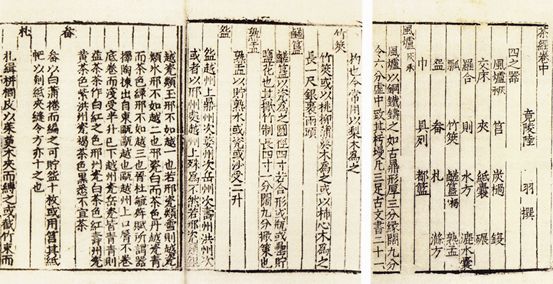 茶經卷中
竟陵陸 羽 撰
四之器
風爐灰承 筥 炭檛 鍑
交床 夾 紙囊 碾
羅合 則 水方 漉水囊
瓢 竹筴 鹺簋揭 熟盂
盌 畚 札 滌方
巾 具列 都籃
風爐灰承
風爐以銅鐵鑄之如古鼎形厚三分緣闊九分
令六分虛中致其杇墁凡三足古文書二十一
杓也人常用以梨木為之
竹筴
竹筴或以桃柳蒲葵木為之或以柿心木為之
長一尺銀裹兩頭
鹺簋
鹺簋以瓷為之圓徑四寸若合形或瓶或罍貯
鹽花也其揭竹制長四寸一分闊九分揭策也
熟盂
熟盂以貯熟水或瓷或沙受二升
盌
盌越州上鼎州次婺州次岳州次壽州洪州次
或者以邢州處越州上殊為不然若邢瓷類銀
越瓷類玉邢不如越一也若邢瓷類雪則越瓷
類冰邢不如越二也邢瓷白而茶色丹越瓷青
而茶色綠邢不如越三也晉杜毓荈賦所謂器
擇陶揀出自東甌甌越也甌越州上口脣不卷
底卷而淺受半升已下越州瓷岳瓷皆青青則
益茶茶作白紅之色邢州瓷白茶色紅壽州瓷
黃茶色紫洪州瓷褐茶色黑悉不宜茶
畚
畚以白蒲捲而編之可貯盌十枚或用筥其紙
帊以剡紙夾縫令方亦十之也
札
札緝栟櫚皮以茱萸木夾而縛之或截竹束而